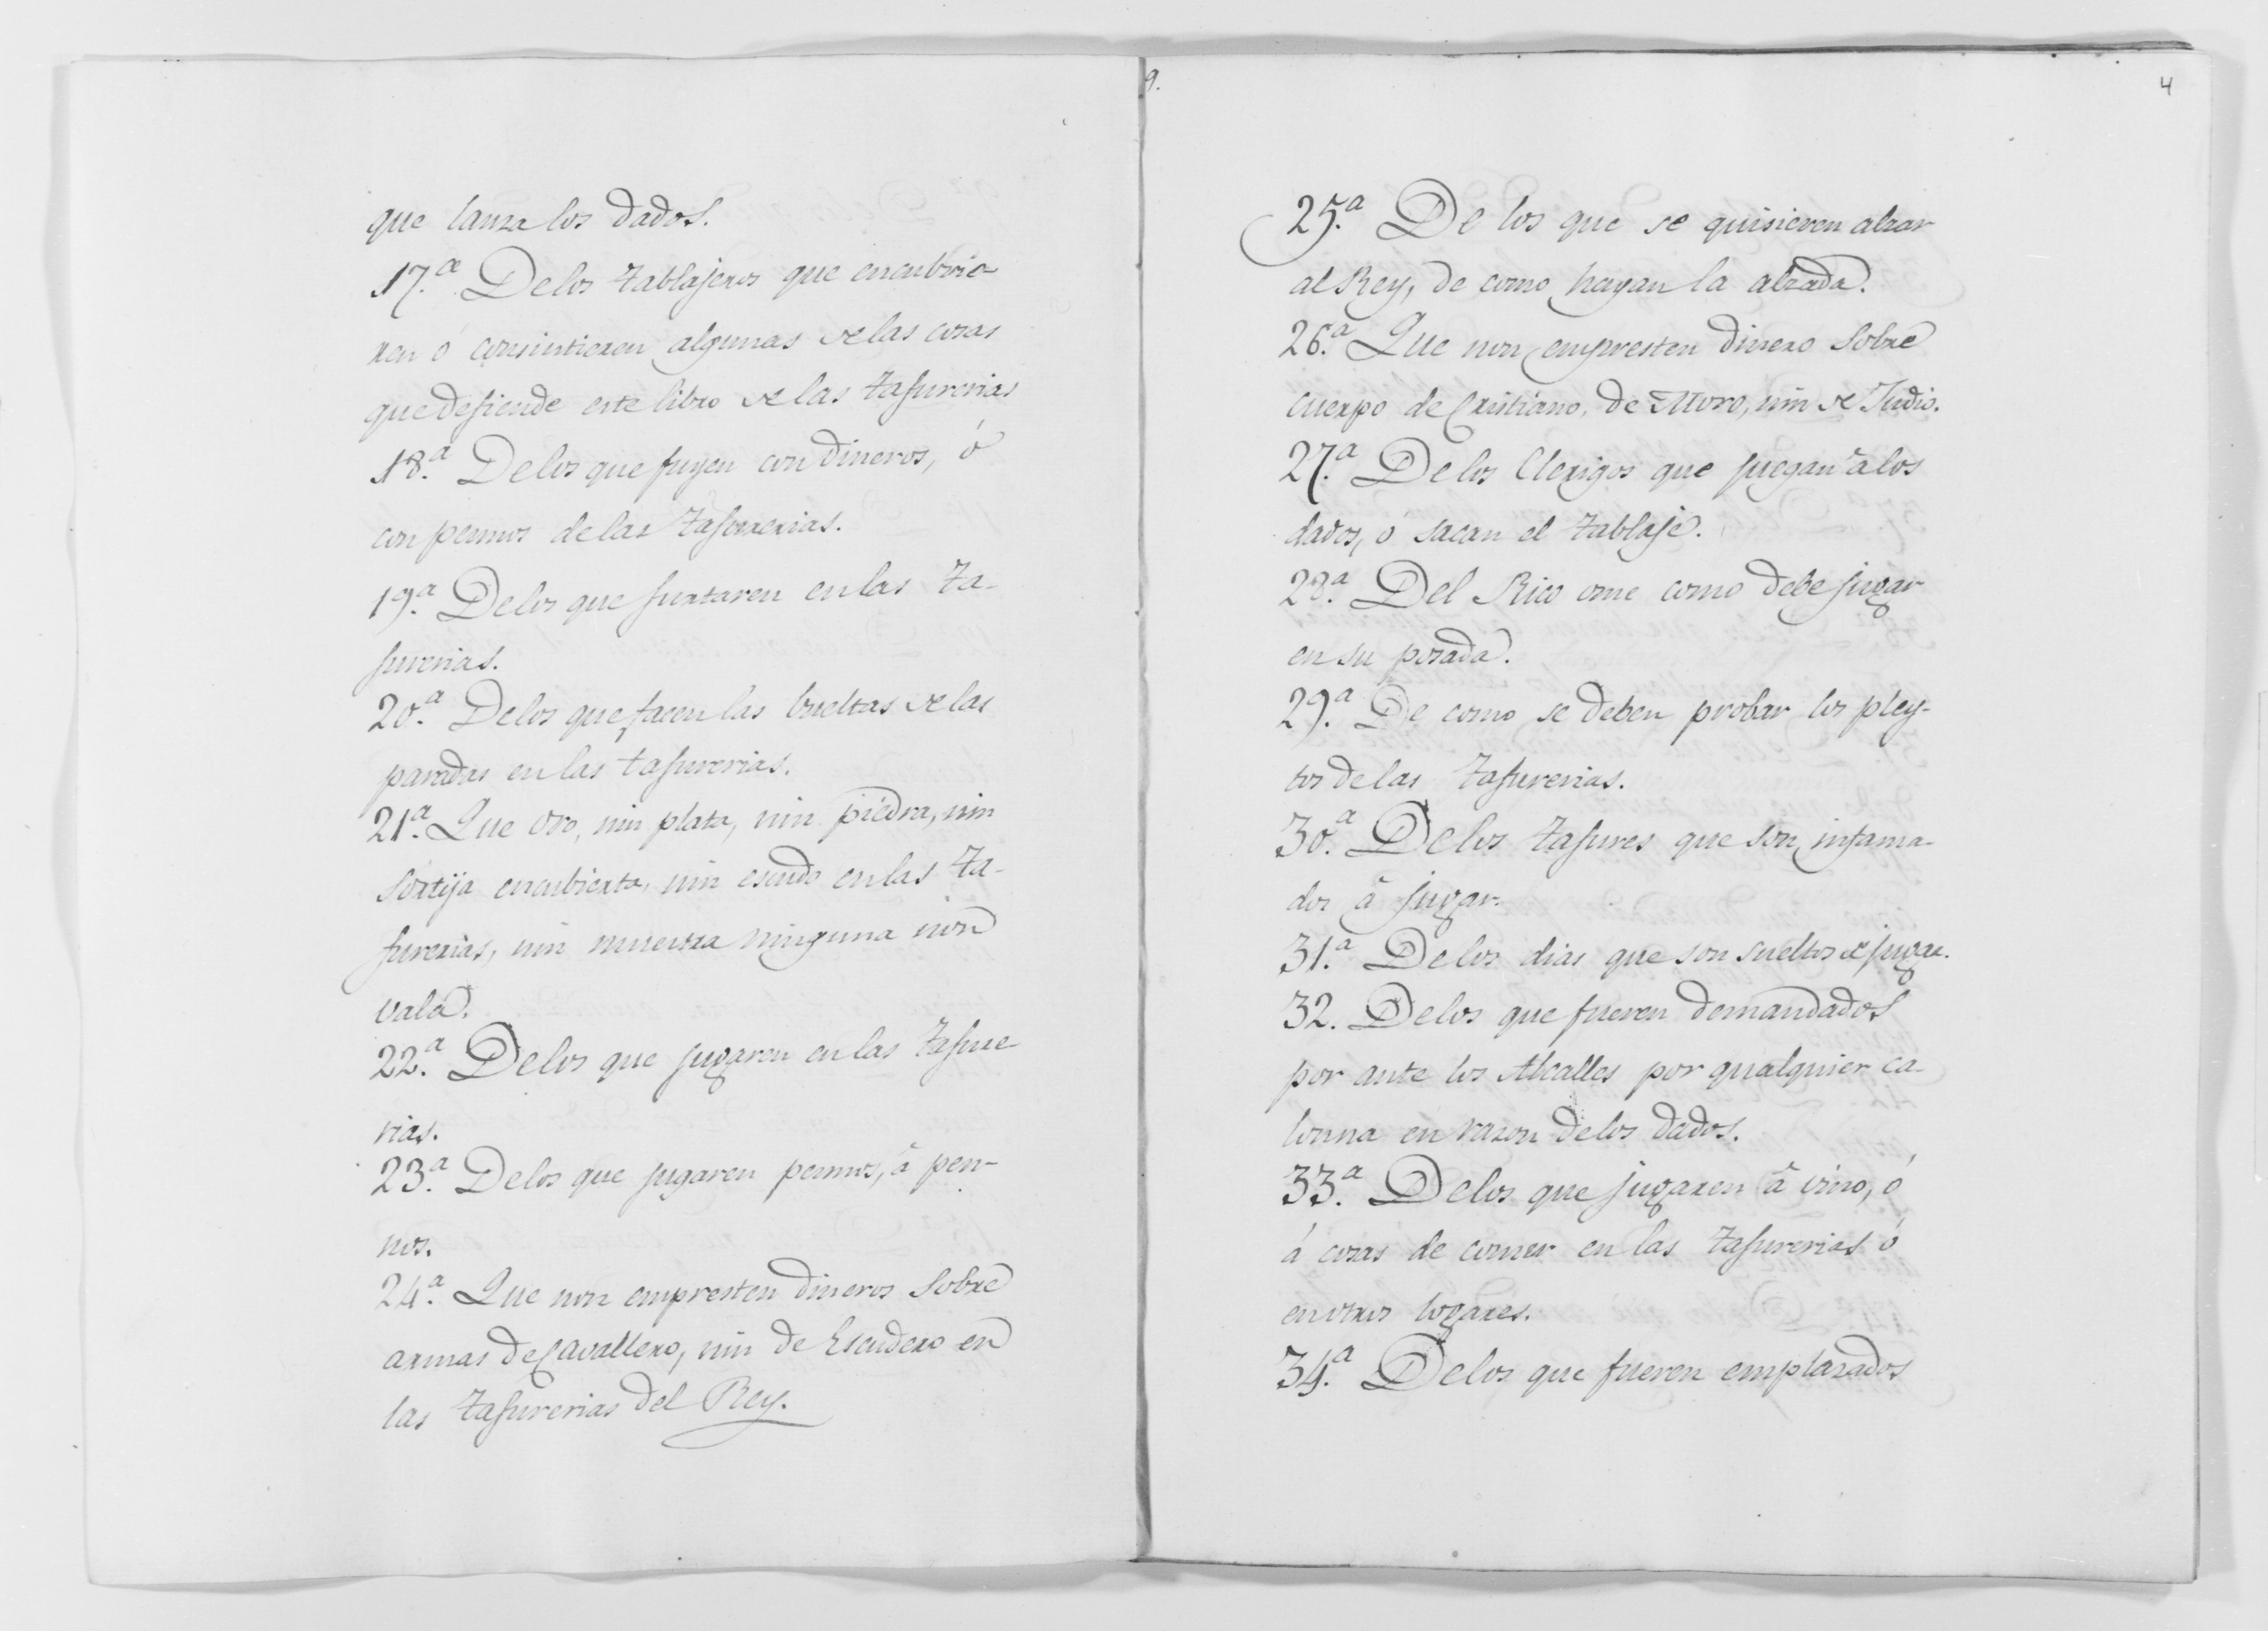 que lanza los dados.
17.ª De los tablajeros que encubrie-
ren ó consintieren algunas de las cosas
que defiende este libro de las tafurerias
18.ª De los que fuyen con dineros, ó
con pennos de las tafurrerias.
19.ª De los que furtaren en las ta-
furerias.
20.ª De los que facen las bueltas de las
paradas en las tafurerias.
21.ª Que oro, nin plata, nin piedra, nin
sortija encubierta, nin escudo en las ta-
furerias, nin muestra ninguna non
vala.
22.ª De los que jugaren en las tafure
rias.
23.ª De los que jugaren pennos, â pen-
nos.
24.ª Que non empresten dineros sobre
armas de Cavallero, nin de Escudero en
las tafurerias del Rey.
9.
4
25.ª De los que se quisieren alzar
al Rey, de como hayan la alzada.
26.ª Que non empresten dinero sobre
cuerpo de Cristiano, de Moro, nin de Judio.
27.ª De los Clerigos que juegan â los
dados, ó sacan el tablaje.
28.ª Del Rico ome como debe jugar
en su posada.
29.ª De como se deben probar los pley-
tos de las tafurerias.
30.ª De los tafures que son infama-
dos â jugar.
31.ª De los dias que son sueltos de jugar.
32. De los que fueren demandados
por ante los Alcalles por qualquier ca-
lonna en razon de los dados.
33.ª De los que jugaren â vino, ó
á cosas de comer en las tafurerias ó
en otros logares.
34.ª De los que fueren emplazados